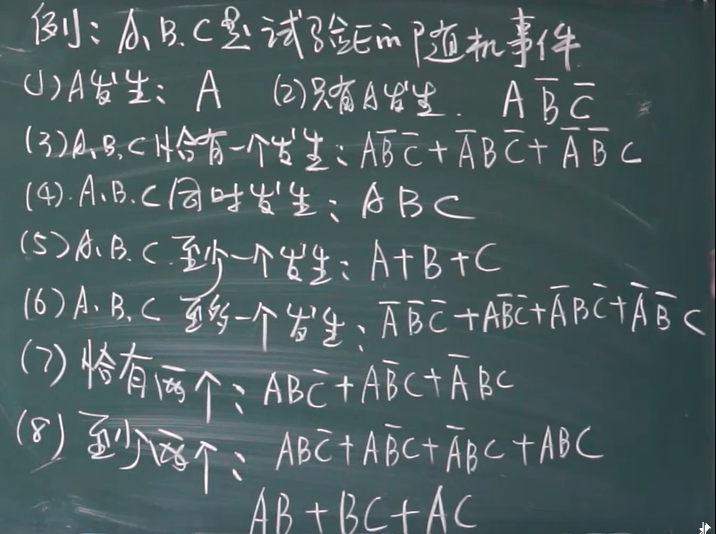 例:A、B.C是试验E的随机事件
(1)A发生:A (2)只有A发生. A B̅ C̅
(3)A、B、C恰有一个发生:AB̅C̅+A̅BC̅+A̅B̅C
(4).A、B.C同时发生:ABC
(5)A、B.C.至少一个发生:A+B+C
(6)A、B、C 至多一个发生:A̅B̅C̅+AB̅C̅+A̅BC̅+A̅B̅C
(7)恰有两个:ABC̅+AB̅C+A̅BC
(8)至少两个:ABC̅+AB̅C+A̅BC+ABC
AB+BC+AC